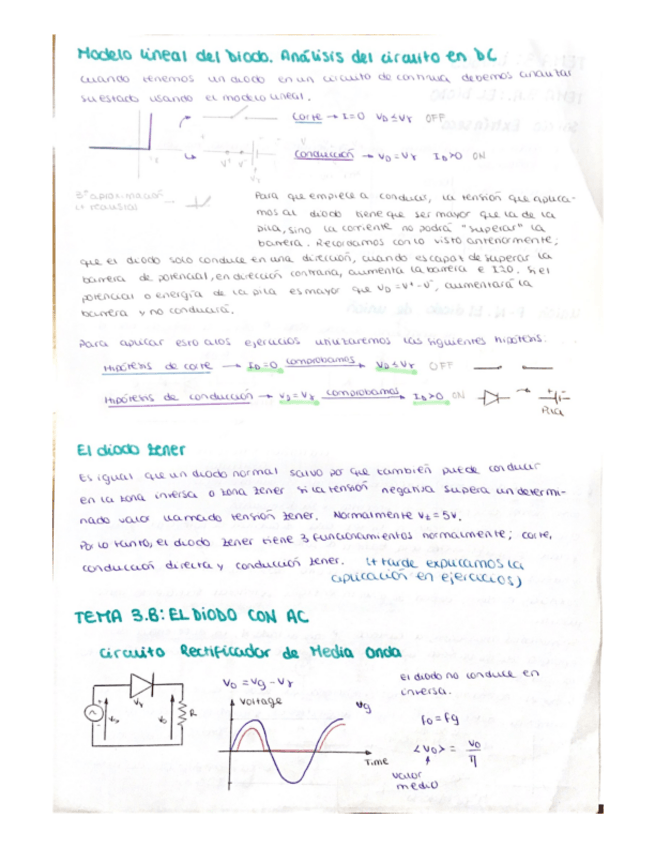 Modelo lineal del Diodo. Análisis del circuito en DC
Cuando tenemos un diodo en un circuito de continua debemos
su estado usando el modelo lineal.
Corte → I=0 VD ≤ Vγ OFF
Conducción → VD = Vγ ID>0 ON
3ª aproximación
Para que empiece a conducir, la tensión que aplica-
mos al diodo tiene que ser mayor que la de la
pila, sino la corriente no podrá "superar" la
barrera. Recordamos con lo visto anteriormente;
que el diodo solo conduce en una dirección, cuando es capaz de superar la
barrera de potencial, en dirección contraria, aumenta la barrera e I≃0. Si el
potencial o energía de la pila es mayor que VD = V⁺ - V⁻, aumentará la
barrera y no conducirá.
Para aplicar esto a los ejercicios utilizaremos las siguientes hipótesis.
Hipótesis de corte → ID=0 comprobamos → VD ≤ Vγ OFF
Hipótesis de conducción → VD = Vγ comprobamos → ID>0 ON
Pila
El diodo zener
Es igual que un diodo normal salvo por que también puede conducir
en la zona inversa o zona zener si la tensión negativa supera un determi-
nado valor llamado tensión zener. Normalmente Vz = 5V.
Por lo tanto, el diodo zener tiene 3 funcionamientos normalmente; corte,
conducción directa y conducción zener. (+ tarde explicamos la
aplicación en ejercicios)
TEMA 3.B: EL DIODO CON AC
Circuito Rectificador de Media Onda
Vo = Vg - Vγ
Voltage
Vg
Time
Vγ
R
El diodo no conduce en
inversa.
fo = fg
<Vo> = Vo / π
valor
medio